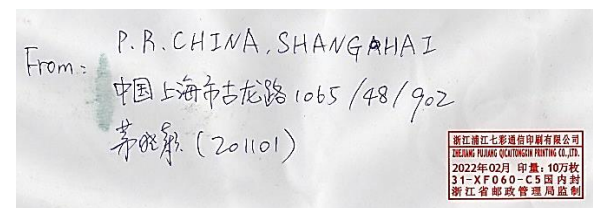 P.R.CHINA, SHANGHAI
From:
中国上海市古龙路1065/48/902
茅 (201101)
浙江浦江七彩通信印刷有限公司
ZHEJIANG PUJIANG QICAITONGXIN PRINTING CO.,LTD.
2022年02月 印量:10万枚
31-XF060-C5国内封
浙江省邮政管理局监制